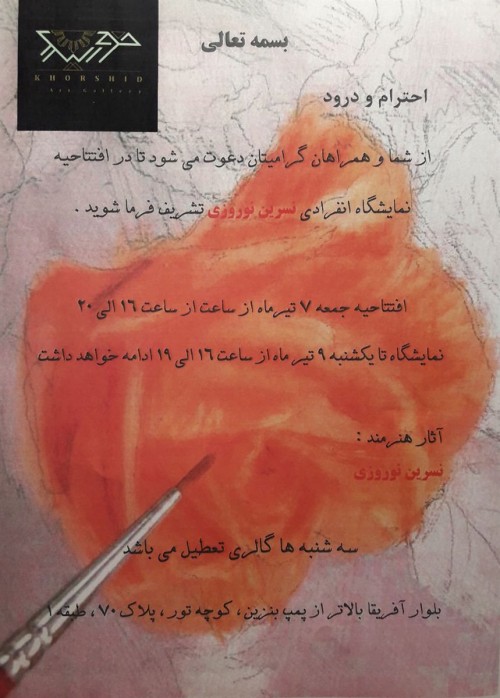 خورشید
KHORSHID
Art Gallery
بسمه تعالی
احترام و درود
از شما و همراهان گرامیتان دعوت می شود تا در افتتاحیه
نمایشگاه انفرادی نسرین نوروزی تشریف فرما شوید .
افتتاحیه جمعه ۷ تیرماه از ساعت از ساعت ۱۶ الی ۲۰
نمایشگاه تا یکشنبه ۹ تیر ماه از ساعت ۱۶ الی ۱۹ ادامه خواهد داشت
آثار هنرمند :
نسرین نوروزی
سه شنبه ها گالری تعطیل می باشد
بلوار آفریقا بالاتر از پمپ بنزین ، کوچه تور ، پلاک ۷۰ ، طبقه ۱